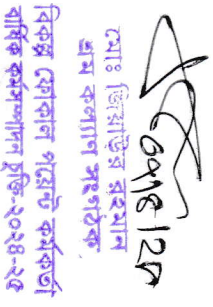 ০৭/৪/২৫
মোঃ জিয়াউর রহমান
শ্রম কল্যাণ সংগঠক
বিকল্প ফোকাল পয়েন্ট কর্মকর্তা
বার্ষিক কর্মসম্পাদন চুক্তি-২০২৪-২৫